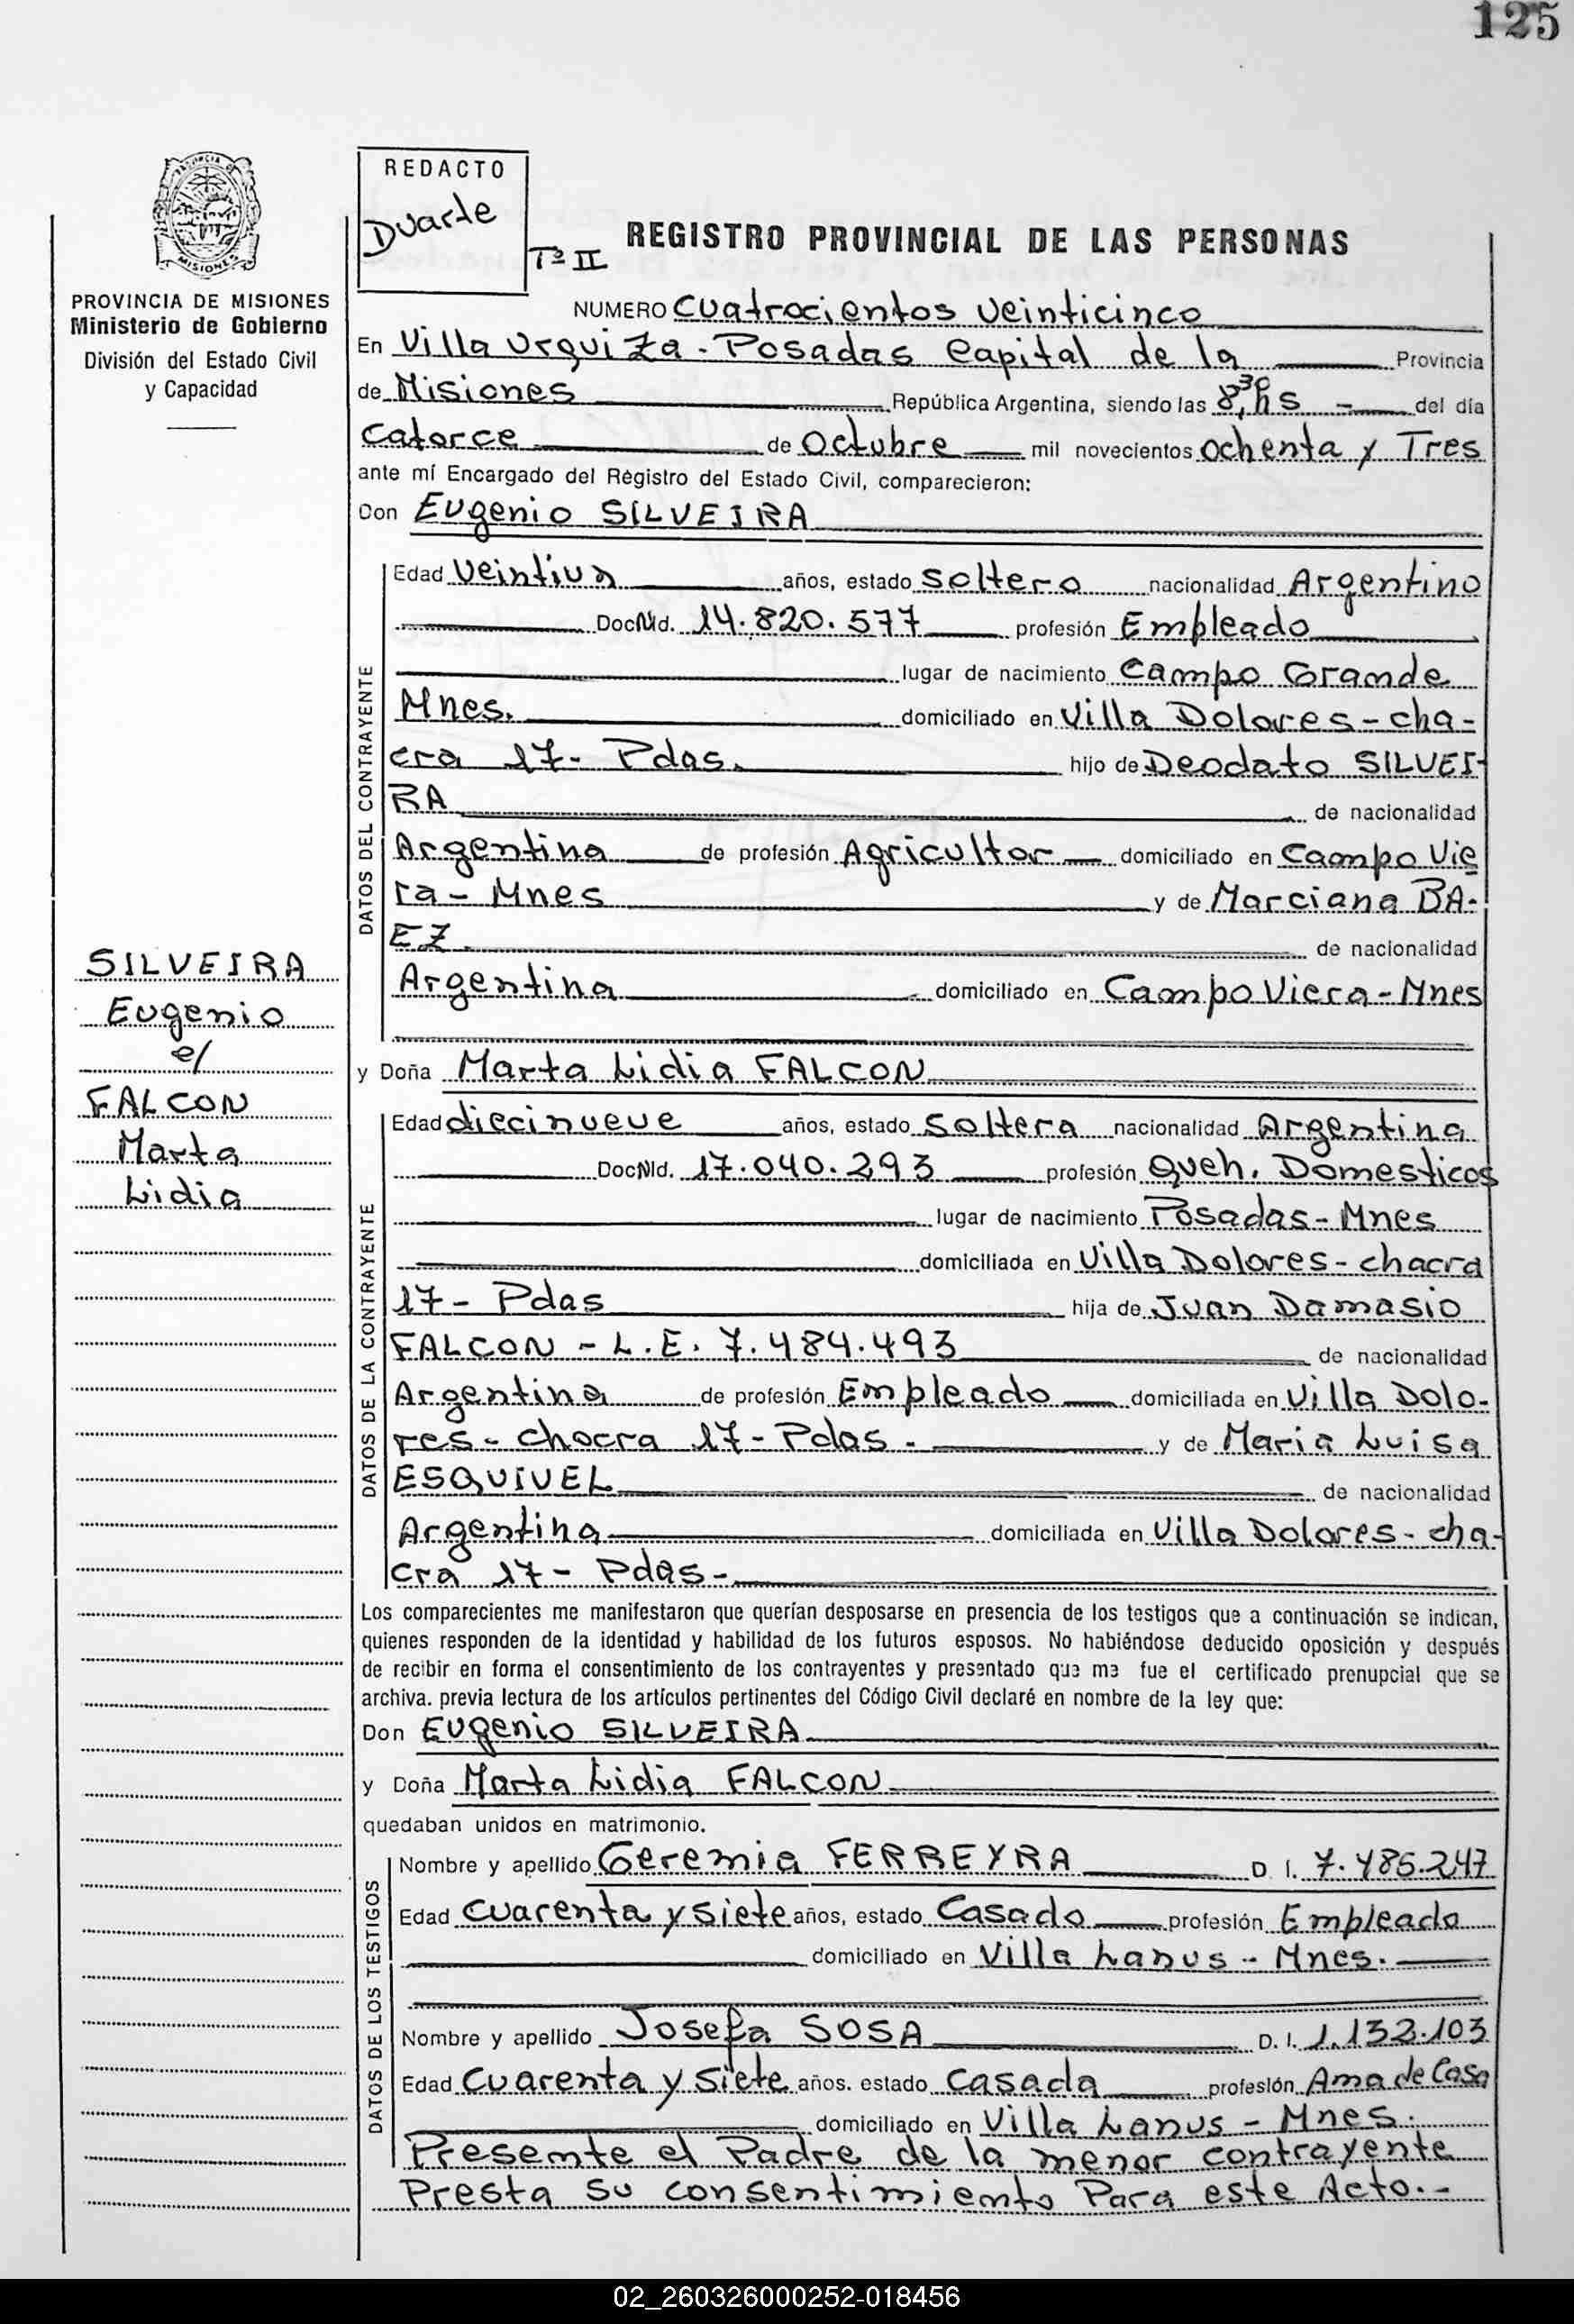 125
PROVINCIA DE MISIONES
Ministerio de Gobierno
División del Estado Civil
y Capacidad
SILVEIRA
Eugenio
c/
FALCON
Marta
Lidia
REDACTO
Duarte
Tº II
REGISTRO PROVINCIAL DE LAS PERSONAS
NUMERO Cuatrocientos veinticinco
En Villa Urquiza - Posadas Capital de la Provincia
de Misiones República Argentina, siendo las 8,30 hs - del día
Catorce de Octubre mil novecientos ochenta y Tres
ante mí Encargado del Registro del Estado Civil, comparecieron:
Don Eugenio SILVEIRA
DATOS DEL CONTRAYENTE
Edad Veintiun años, estado Soltero nacionalidad Argentino
Doc.NId. 14.820.577 profesión Empleado
lugar de nacimiento Campo Grande
Mnes. domiciliado en Villa Dolores - cha-
cra 17 - Pdas. hijo de Deodato SILVEI-
RA de nacionalidad
Argentina de profesión Agricultor domiciliado en Campo Vie
ra - Mnes y de Marciana BA-
EZ. de nacionalidad
Argentina domiciliado en Campo Viera - Mnes
y Doña Marta Lidia FALCON
DATOS DE LA CONTRAYENTE
Edad diecinueve años, estado Soltera nacionalidad Argentina
Doc.NId. 17.040.293 profesión Queh. Domesticos
lugar de nacimiento Posadas - Mnes
domiciliada en Villa Dolores - chacra
17 - Pdas hija de Juan Damasio
FALCON - L.E. 7.484.493 de nacionalidad
Argentina de profesión Empleado domiciliada en Villa Dolo-
res - chacra 17 - Pdas - y de Maria Luisa
ESQUIVEL de nacionalidad
Argentina domiciliada en Villa Dolores - cha-
cra 17 - Pdas -
Los comparecientes me manifestaron que querían desposarse en presencia de los testigos que a continuación se indican,
quienes responden de la identidad y habilidad de los futuros esposos. No habiéndose deducido oposición y después
de recibir en forma el consentimiento de los contrayentes y presentado que me fue el certificado prenupcial que se
archiva. previa lectura de los artículos pertinentes del Código Civil declaré en nombre de la ley que:
Don Eugenio SILVEIRA
y Doña Marta Lidia FALCON
quedaban unidos en matrimonio.
DATOS DE LOS TESTIGOS
Nombre y apellido Geremia FERREYRA D. I. 7.485.247
Edad Cuarenta y Siete años, estado Casado profesión Empleado
domiciliado en Villa Lanus - Mnes.
Nombre y apellido Josefa SOSA D. I. 1.132.103
Edad Cuarenta y Siete años. estado Casada profesión Ama de Casa
domiciliado en Villa Lanus - Mnes.
Presente el Padre de la menor contrayente
Presta su consentimiento Para este Acto.-
02_260326000252-018456